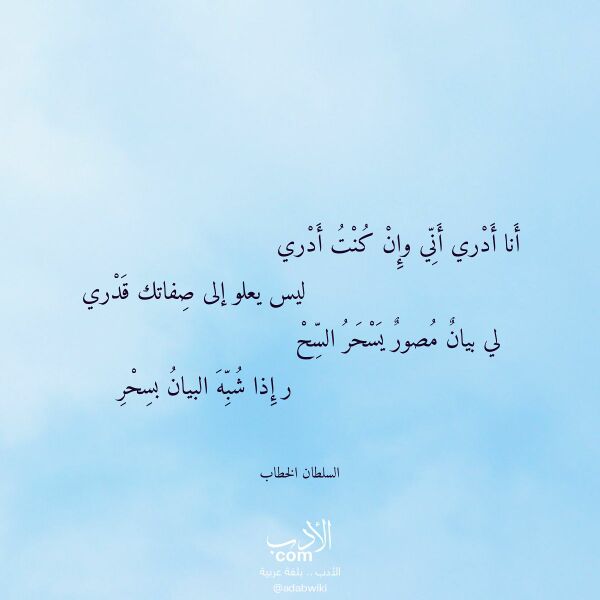 أَنا أَدْري أَنِّي وإِنْ كُنْتُ أَدْري
ليس يعلو إلى صِفاتك قَدْري
لي بيانٌ مُصورٌ يَسْحَرُ السِّحْ
ر إِذا شُبِّهَ البيانُ بسِحْرِ
السلطان الخطاب
الأدب
com
الأدب .. بلغة عربية
@adabwiki